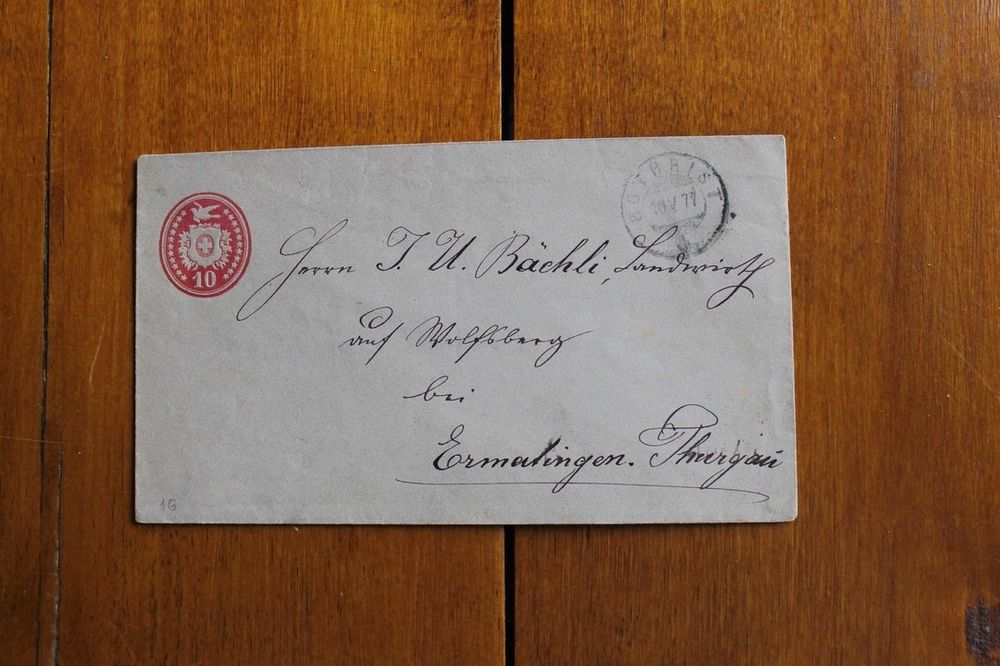 ROTHRIST
10 V 77
10
Herrn J. U. Bächli, Landwirth
auf Wolfsberg
bei
Ermatingen. Thurgau
16